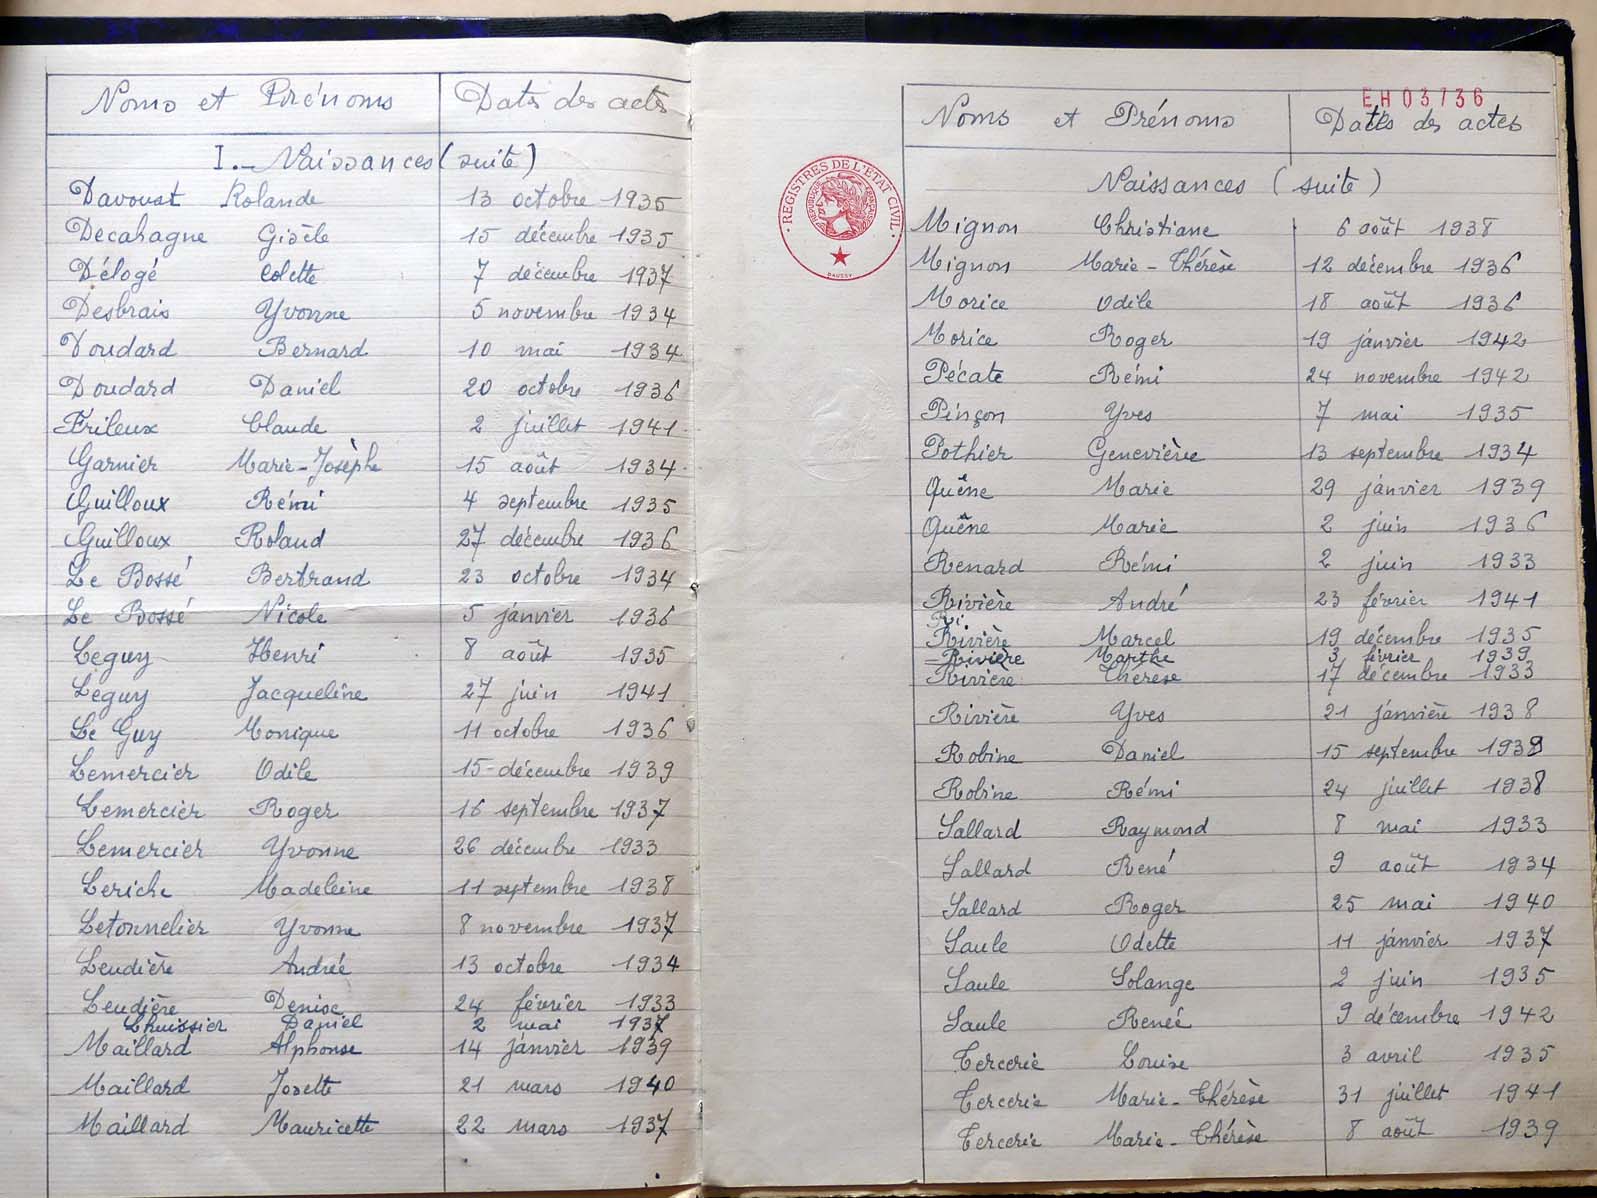 Noms et Prénoms Dates des actes
I._ Naissances (suite)
Davoust Rolande 13 octobre 1935
Décahagne Gisèle 15 décembre 1935
Délogé Colette 7 décembre 1937
Desbrais Yvonne 5 novembre 1934
Doudard Bernard 10 mai 1934
Doudard Daniel 20 octobre 1936
Frileux Claude 2 juillet 1941
Garnier Marie-Josèphe 15 août 1934
Guilloux Rémi 4 septembre 1935
Guilloux Roland 27 décembre 1936
Le Bossé Bertrand 23 octobre 1934
Le Bossé Nicole 5 janvier 1936
Leguy Henri 8 août 1935
Leguy Jacqueline 27 juin 1941
Le Guy Monique 11 octobre 1936
Lemercier Odile 15 décembre 1939
Lemercier Roger 16 septembre 1937
Lemercier Yvonne 26 décembre 1933
Leriche Madeleine 11 septembre 1938
Letonnelier Yvonne 8 novembre 1937
Leudière Andrée 13 octobre 1934
Leudière Denise 24 février 1933
Lhuissier Daniel 2 mai 1937
Maillard Alphonse 14 janvier 1939
Maillard Josette 21 mars 1940
Maillard Mauricette 22 mars 1937
EH03736
Noms et Prénoms Dates des actes
REGISTRES DE L'ETAT CIVIL
REPUBLIQUE FRANÇAISE
DAUSSY
Naissances (suite)
Mignon Christiane 6 août 1938
Mignon Marie-Thérèse 12 décembre 1936
Morice Odile 18 août 1936
Morice Roger 19 janvier 1942
Pécate Rémi 24 novembre 1942
Pinçon Yves 7 mai 1935
Pothier Geneviève 13 septembre 1934
Quêne Marie 29 janvier 1939
Quêne Marie 2 juin 1936
Renard Rémi 2 juin 1933
Rivière André 23 février 1941
Ri
Rivière Marcel 19 décembre 1935
Rivière Marthe 3 février 1939
Rivière Thérèse 17 décembre 1933
Rivière Yves 21 janvière 1938
Robine Daniel 15 septembre 1939
Robine Rémi 24 juillet 1938
Sallard Raymond 8 mai 1933
Sallard René 9 août 1934
Sallard Roger 25 mai 1940
Saule Odette 11 janvier 1937
Saule Solange 2 juin 1935
Saule Renée 9 décembre 1942
Tercerie Louise 3 avril 1935
Tercerie Marie-Thérèse 31 juillet 1941
Tercerie Marie-Thérèse 8 août 1939